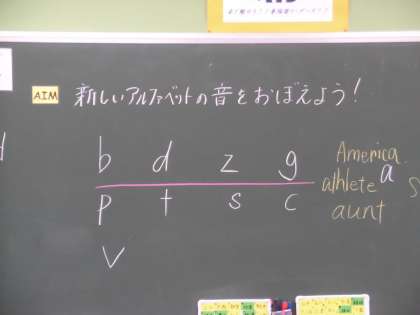 AIM 新しいアルファベットの音をおぼえよう！
b d z g
p t s c
v
America
athlete a
aunt
s